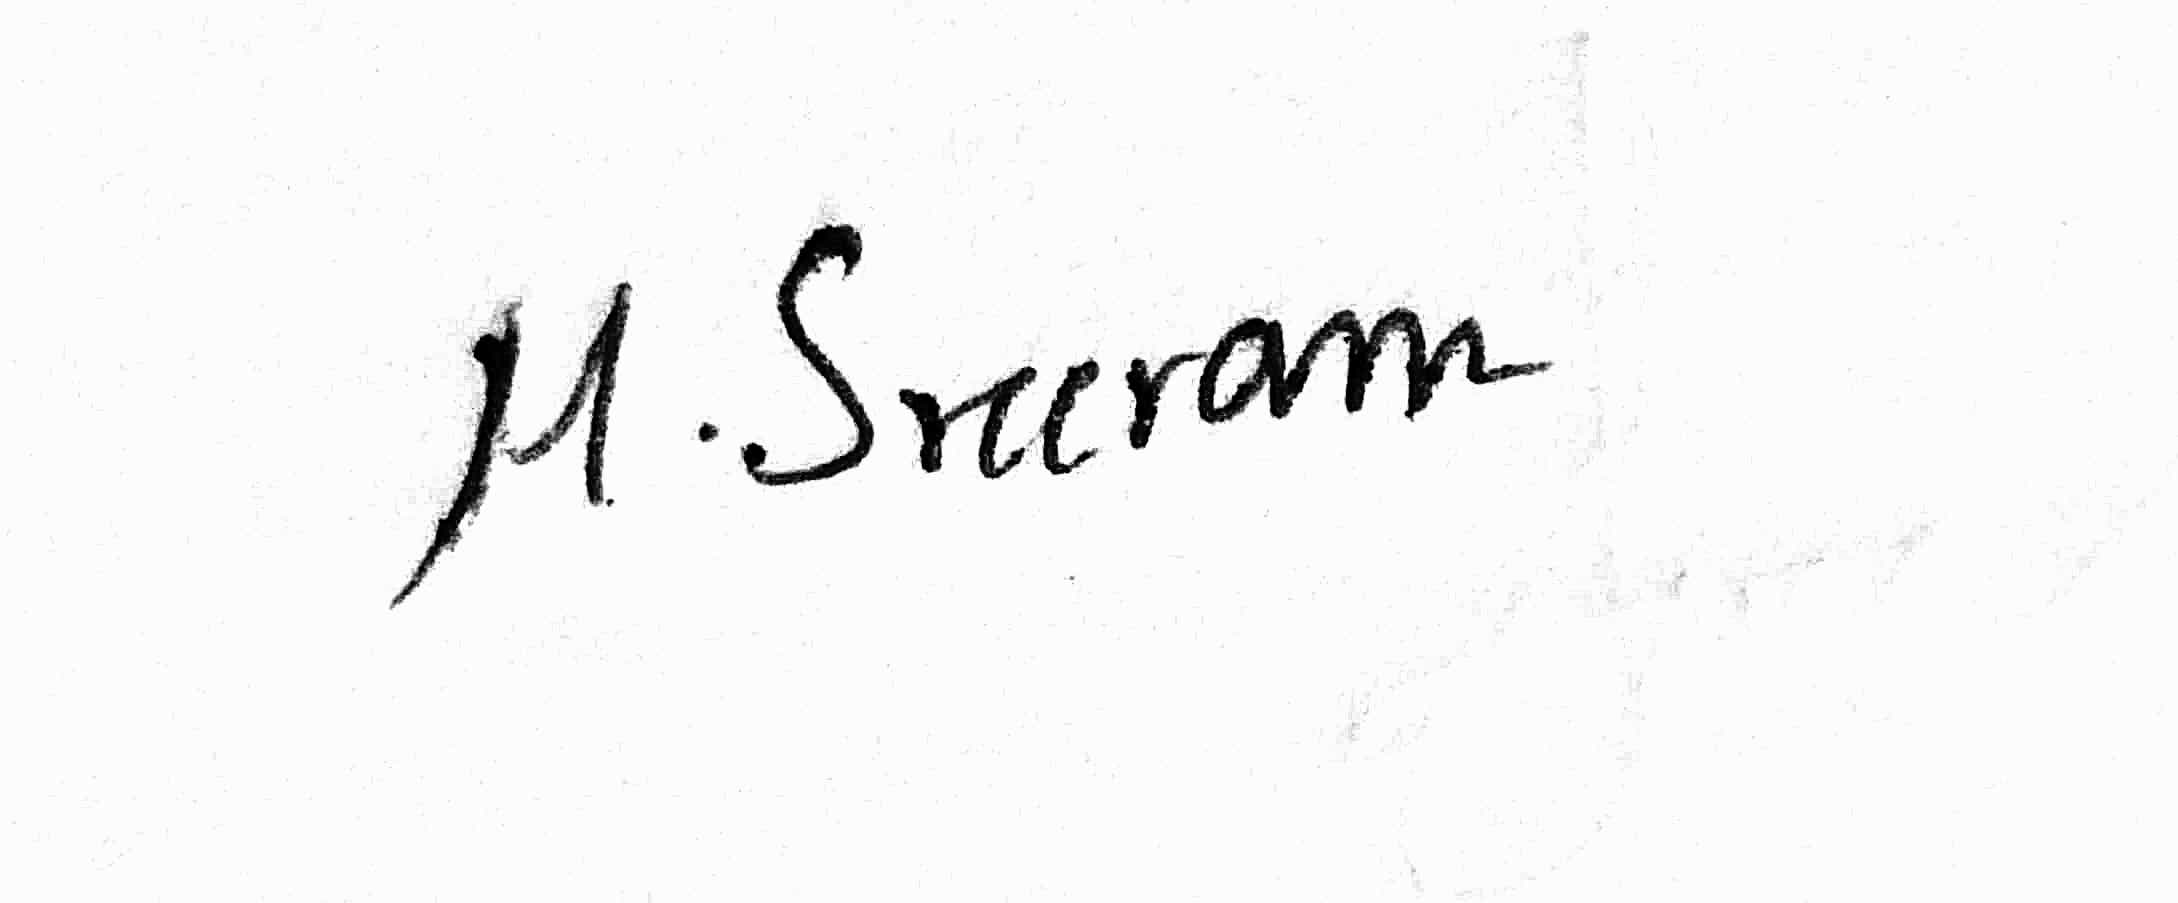 M. Sreeram